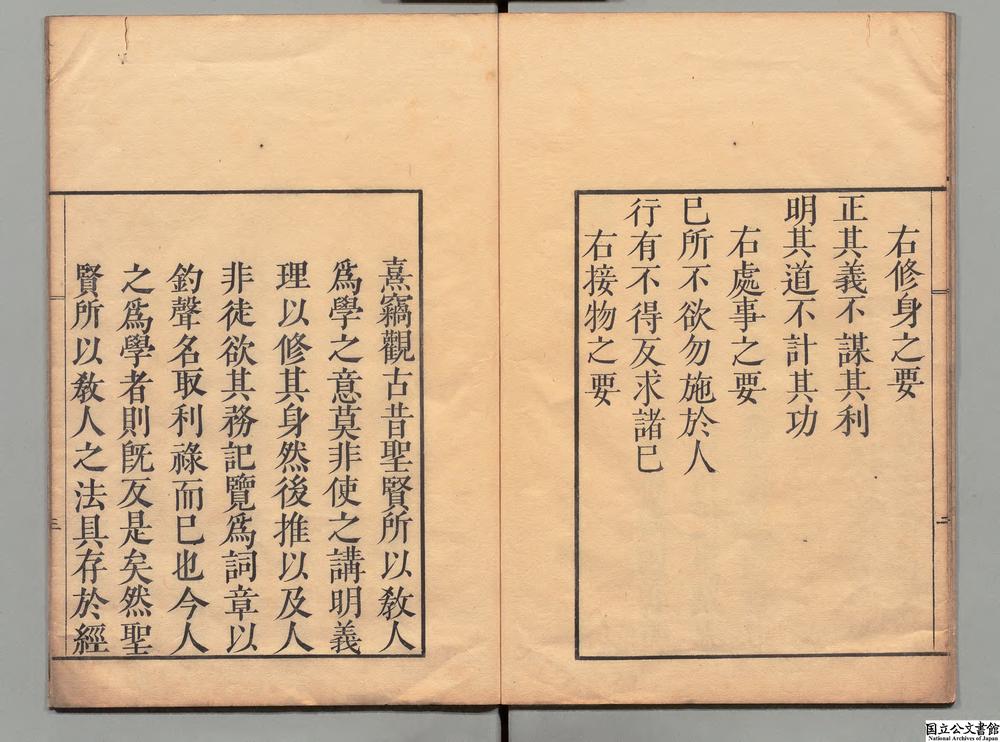 右修身之要
正其義不謀其利
明其道不計其功
右處事之要
已所不欲勿施於人
行有不得反求諸已
右接物之要
熹竊觀古昔聖賢所以敎人
爲學之意莫非使之講明義
理以修其身然後推以及人
非徒欲其務記覽爲詞章以
釣聲名取利祿而已也今人
之爲學者則旣反是矣然聖
賢所以敎人之法具存於經
三
三
国立公文書館
National Archives of Japan